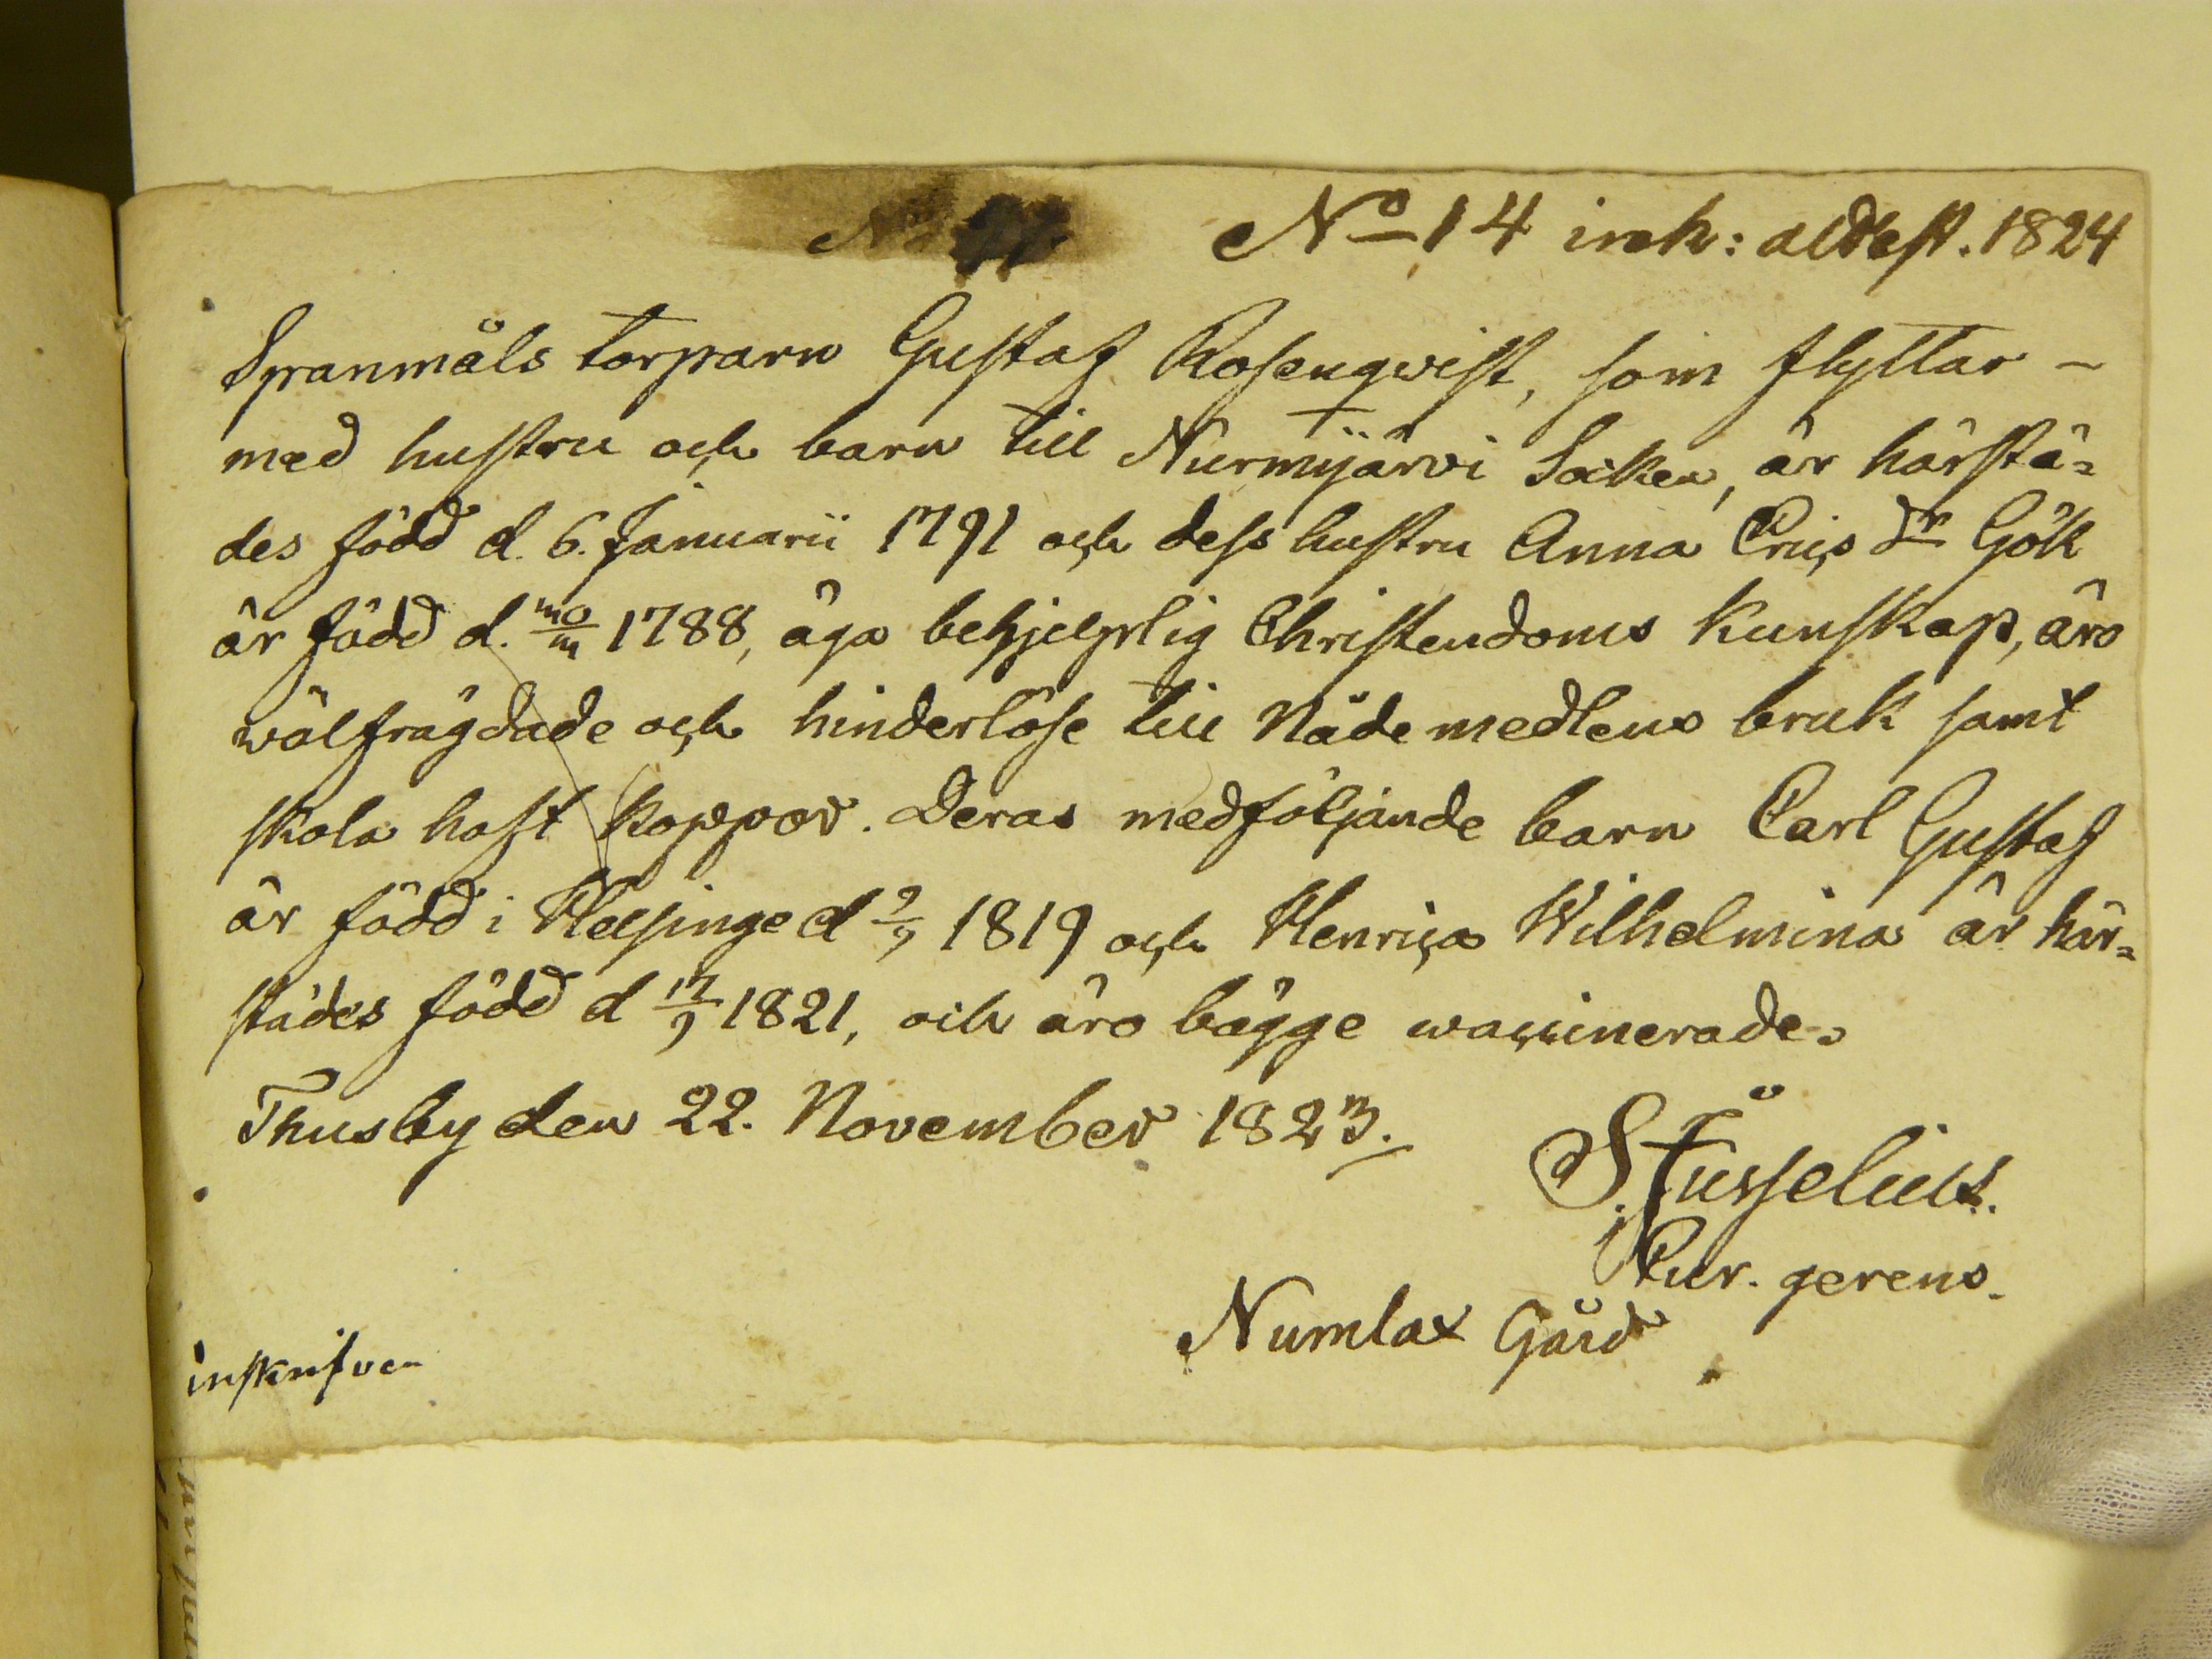 No 14 ink: attest. 1824
Spanmåls torparn Gustaf Rosenqwist, som flyttar –
med hustru och barn till Nurmijärvi Socken, är härstä=
des född d. 6. Januarii 1791 och dess hustru Anna Erics dr Gök
är född d. 1788, äga behjelplig Christendoms kunskap, äro
wälfrägdade och hinderlöse till Nådemedlens bruk samt
skola haft koppor. Deras medföljande barn Carl Gustaf
är född i Helsinge d 2/9 1819 och Henrica Wilhelmina är här=
städes född d 17/9 1821, och äro bägge waccinerade.
Thusby den 22. November 1823.
Cur. gerens.
Numlax Gård
inskrifven